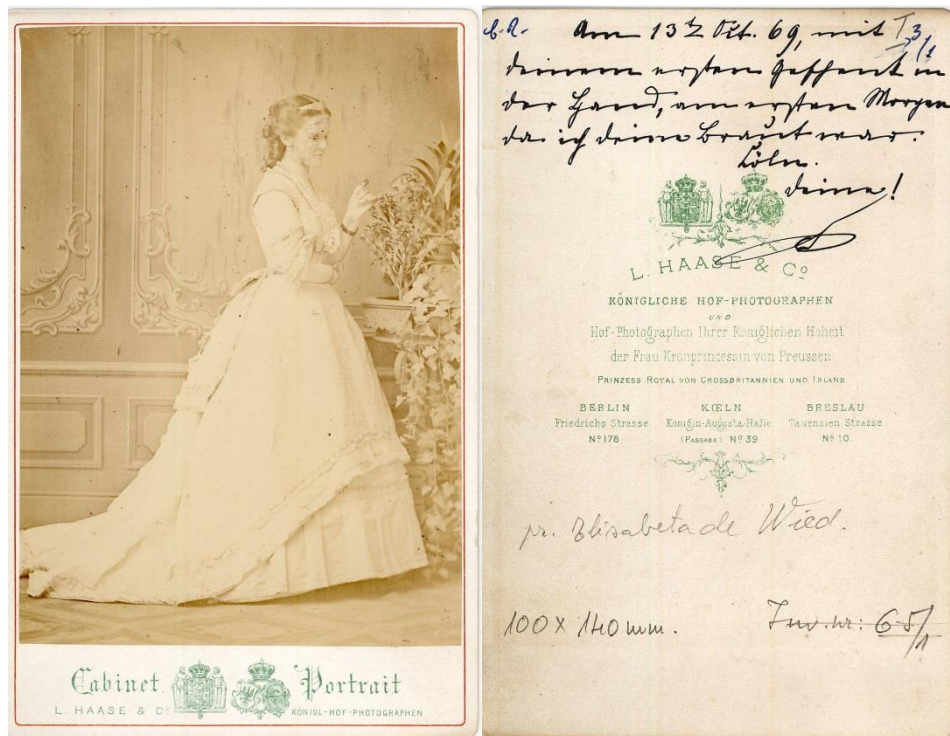 Cabinet Portrait
L. HAASE & Co
KÖNIGL-HOF-PHOTOGRAPHEN
Am 13t Oct. 69, mit
deinem ersten Geschenk in
der Hand, am ersten Morgen
da ich deine Braut war.
Köln.
deine!
L. HAASE & Co
KÖNIGLICHE HOF-PHOTOGRAPHEN
UND
Hof-Photographen Ihrer Königlichen Hoheit
der Frau Kronprinzessin von Preussen
PRINZESS ROYAL VON GROSSBRITANNIEN UND IRLAND
BERLIN KŒLN BRESLAU
Friedrichs Strasse Königin-Augusta-Halle Tauenzien Strasse
No 178 (PASSAGE) No 39 No 10.
pr. Elisabeta de Wied.
100 x 140 mm. Inv. nr: 65/1